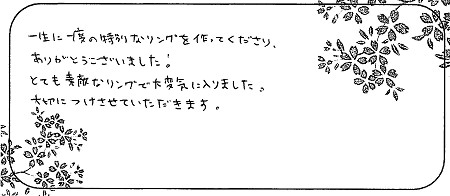 一生に一度の特別なリングを作ってくださり、
ありがとうございました！
とても素敵なリングで大変気に入りました。
大切につけさせていただきます。